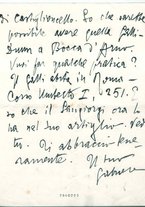 di Castiglioncello. So che sarebbe
possibile avere quella Fatti-
a Bocca d'Arno.
Vuoi far qualche pratica?
Il Fatti abita in Roma-
Corso Umberto I, n. 251.-
so che il Sangiorgi ora lo
ha nel suo artiglio. Ved-
Ti abbraccio tene-
ramente. Il tuo